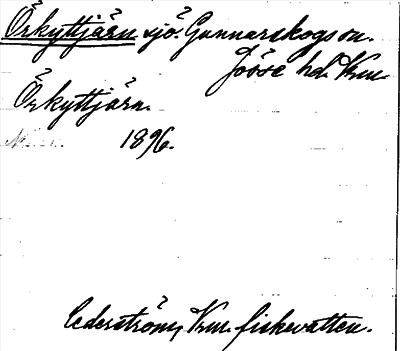 Örkyttjärn sjö. Gunnarskogs sn.
Jösse hd. Vrm.
Örkyttjärn.
1896.
Cederström, Vrm. fiskevatten.